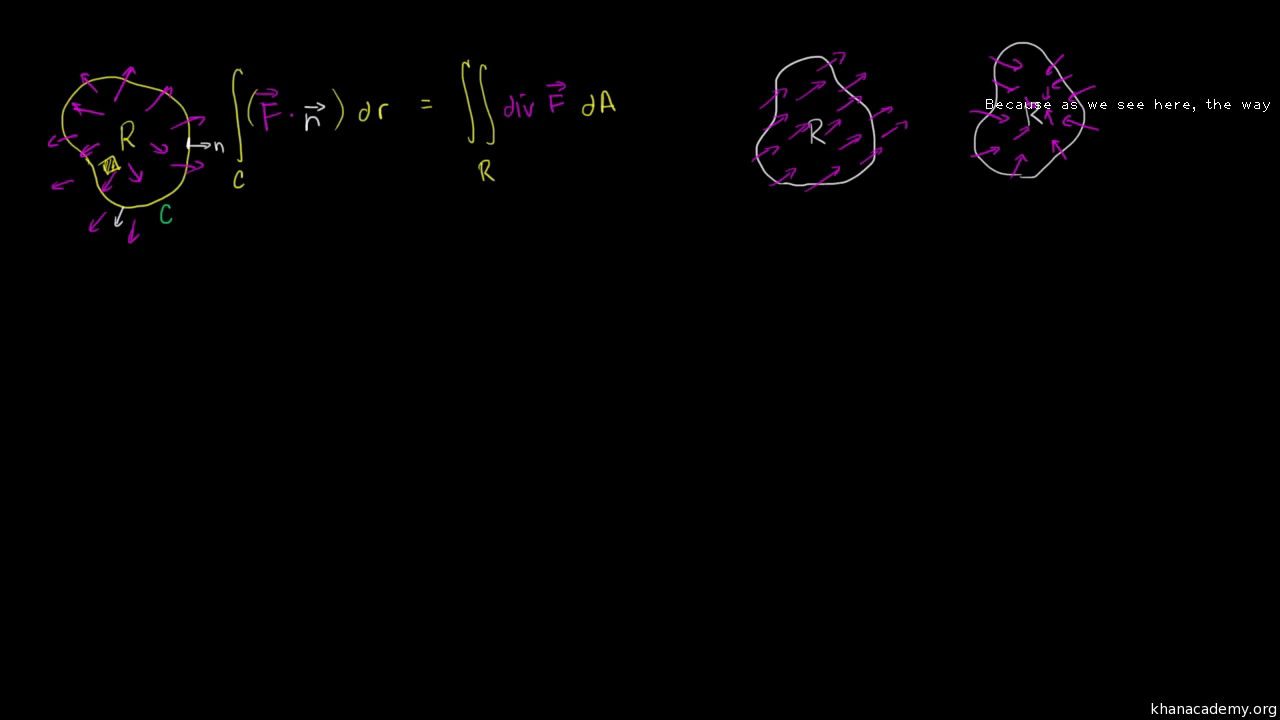 R
n
C
∫_C (F⃗ · n⃗) dr = ∬_R div F⃗ dA
R
R
Because as we see here, the way
khanacademy.org